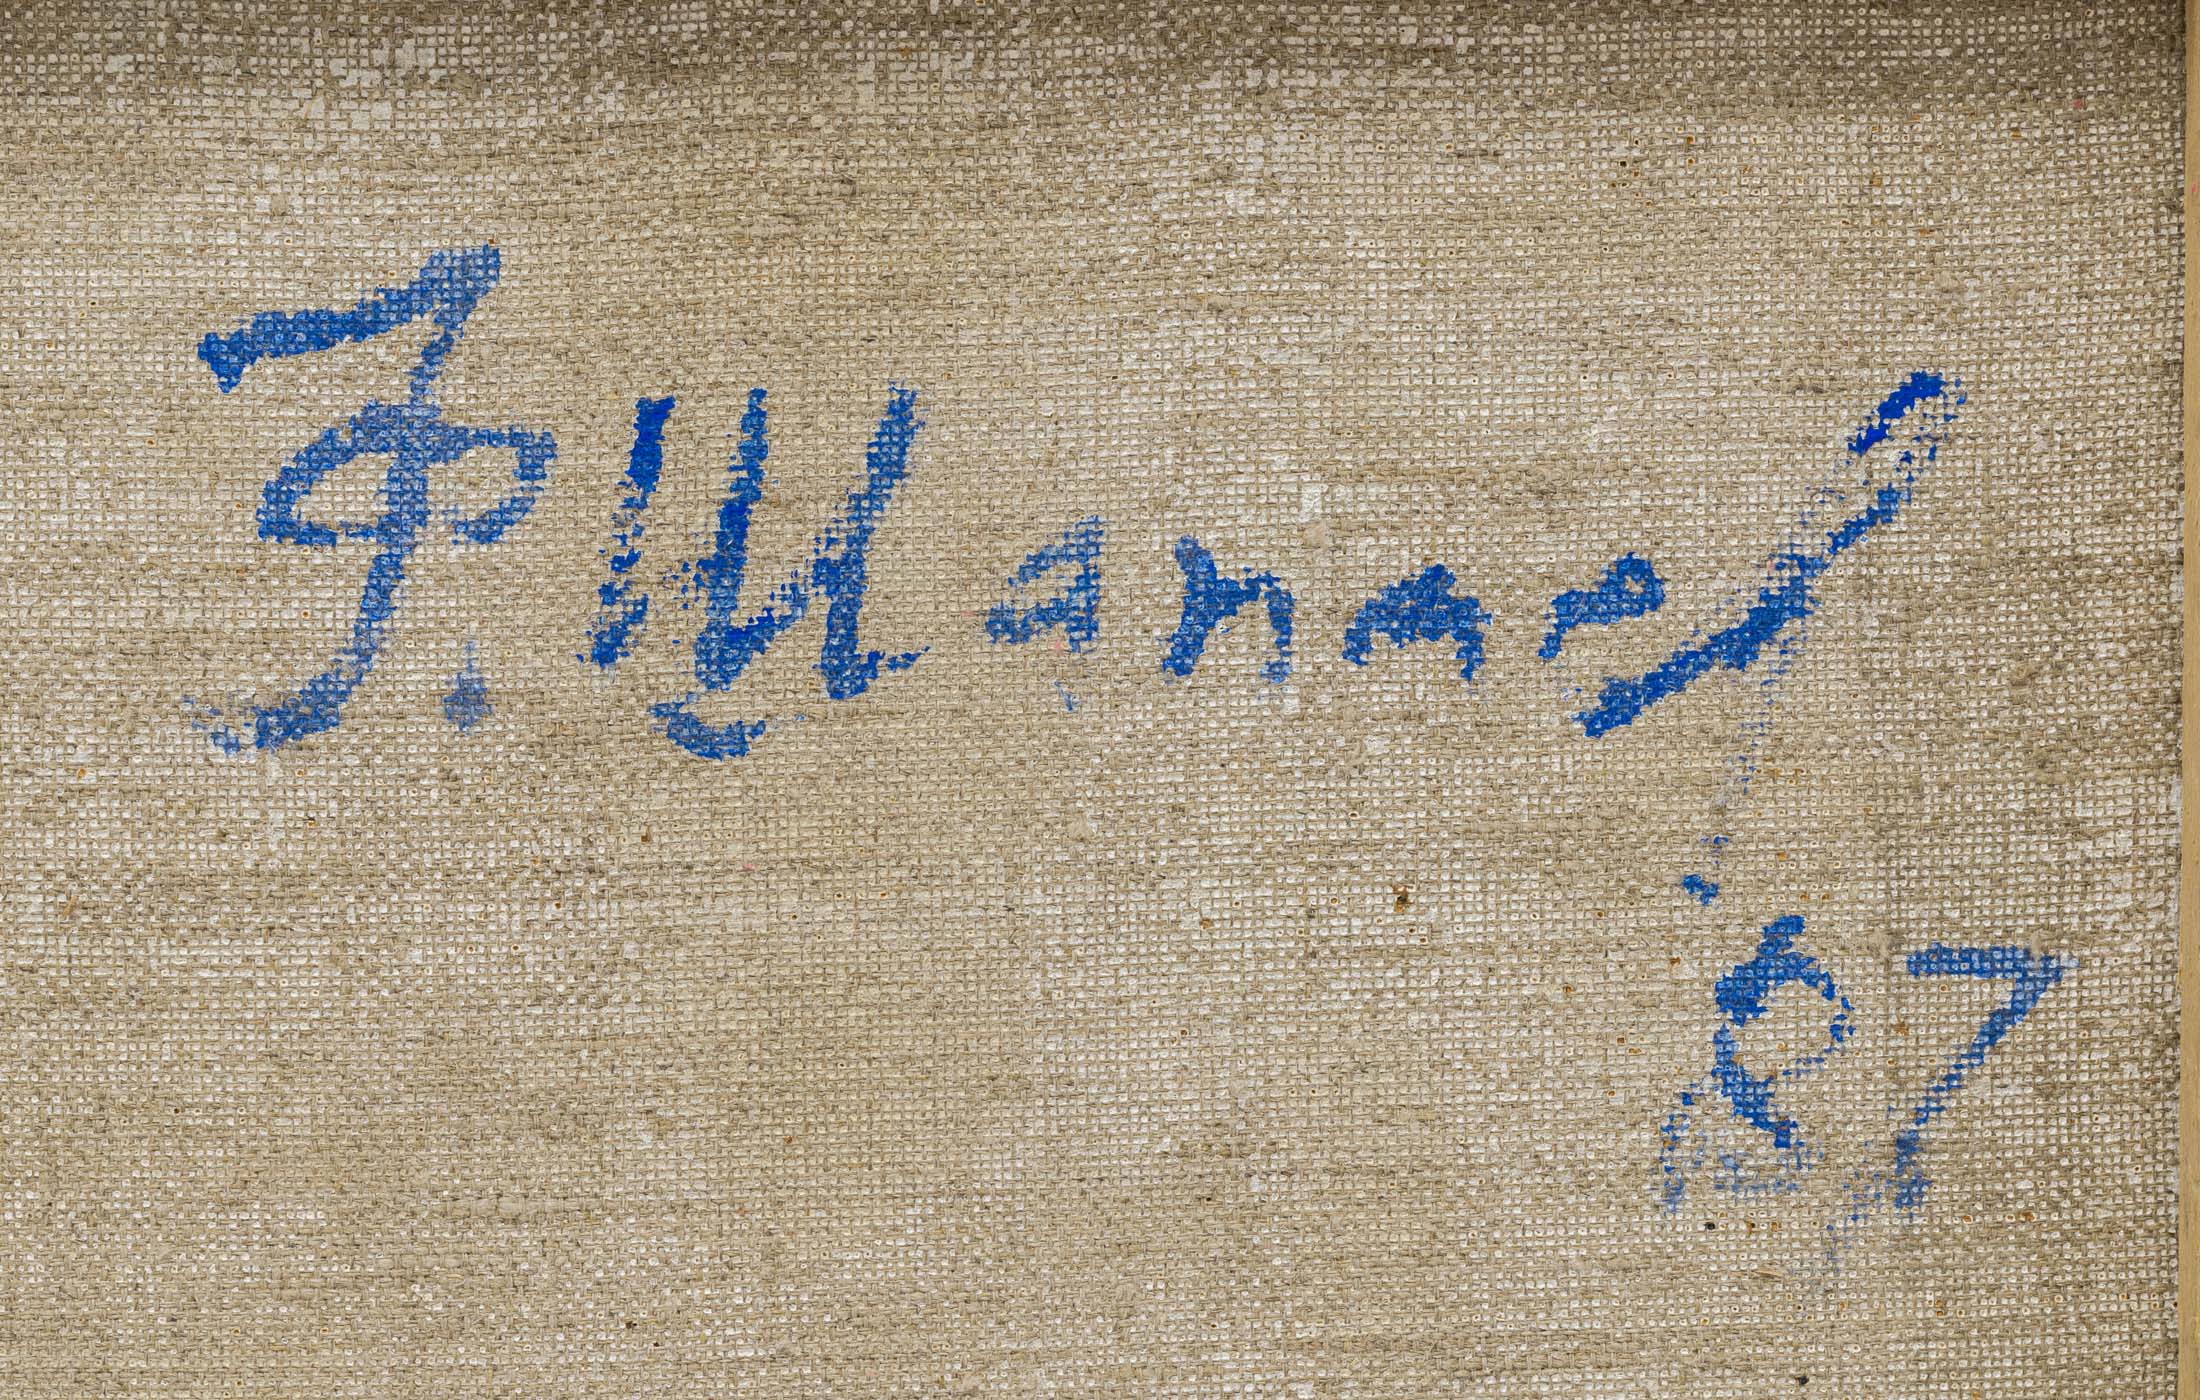 Ф. Шапаев
87